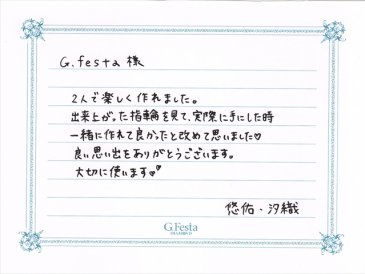 G.festa 様
2人で楽しく作れました。
出来上がった指輪を見て、実際に手にした時
一緒に作れて良かったと改めて思いました♡
良い思い出をありがとうございます。
大切に使います♡
悠佑・汐織
G.Festa